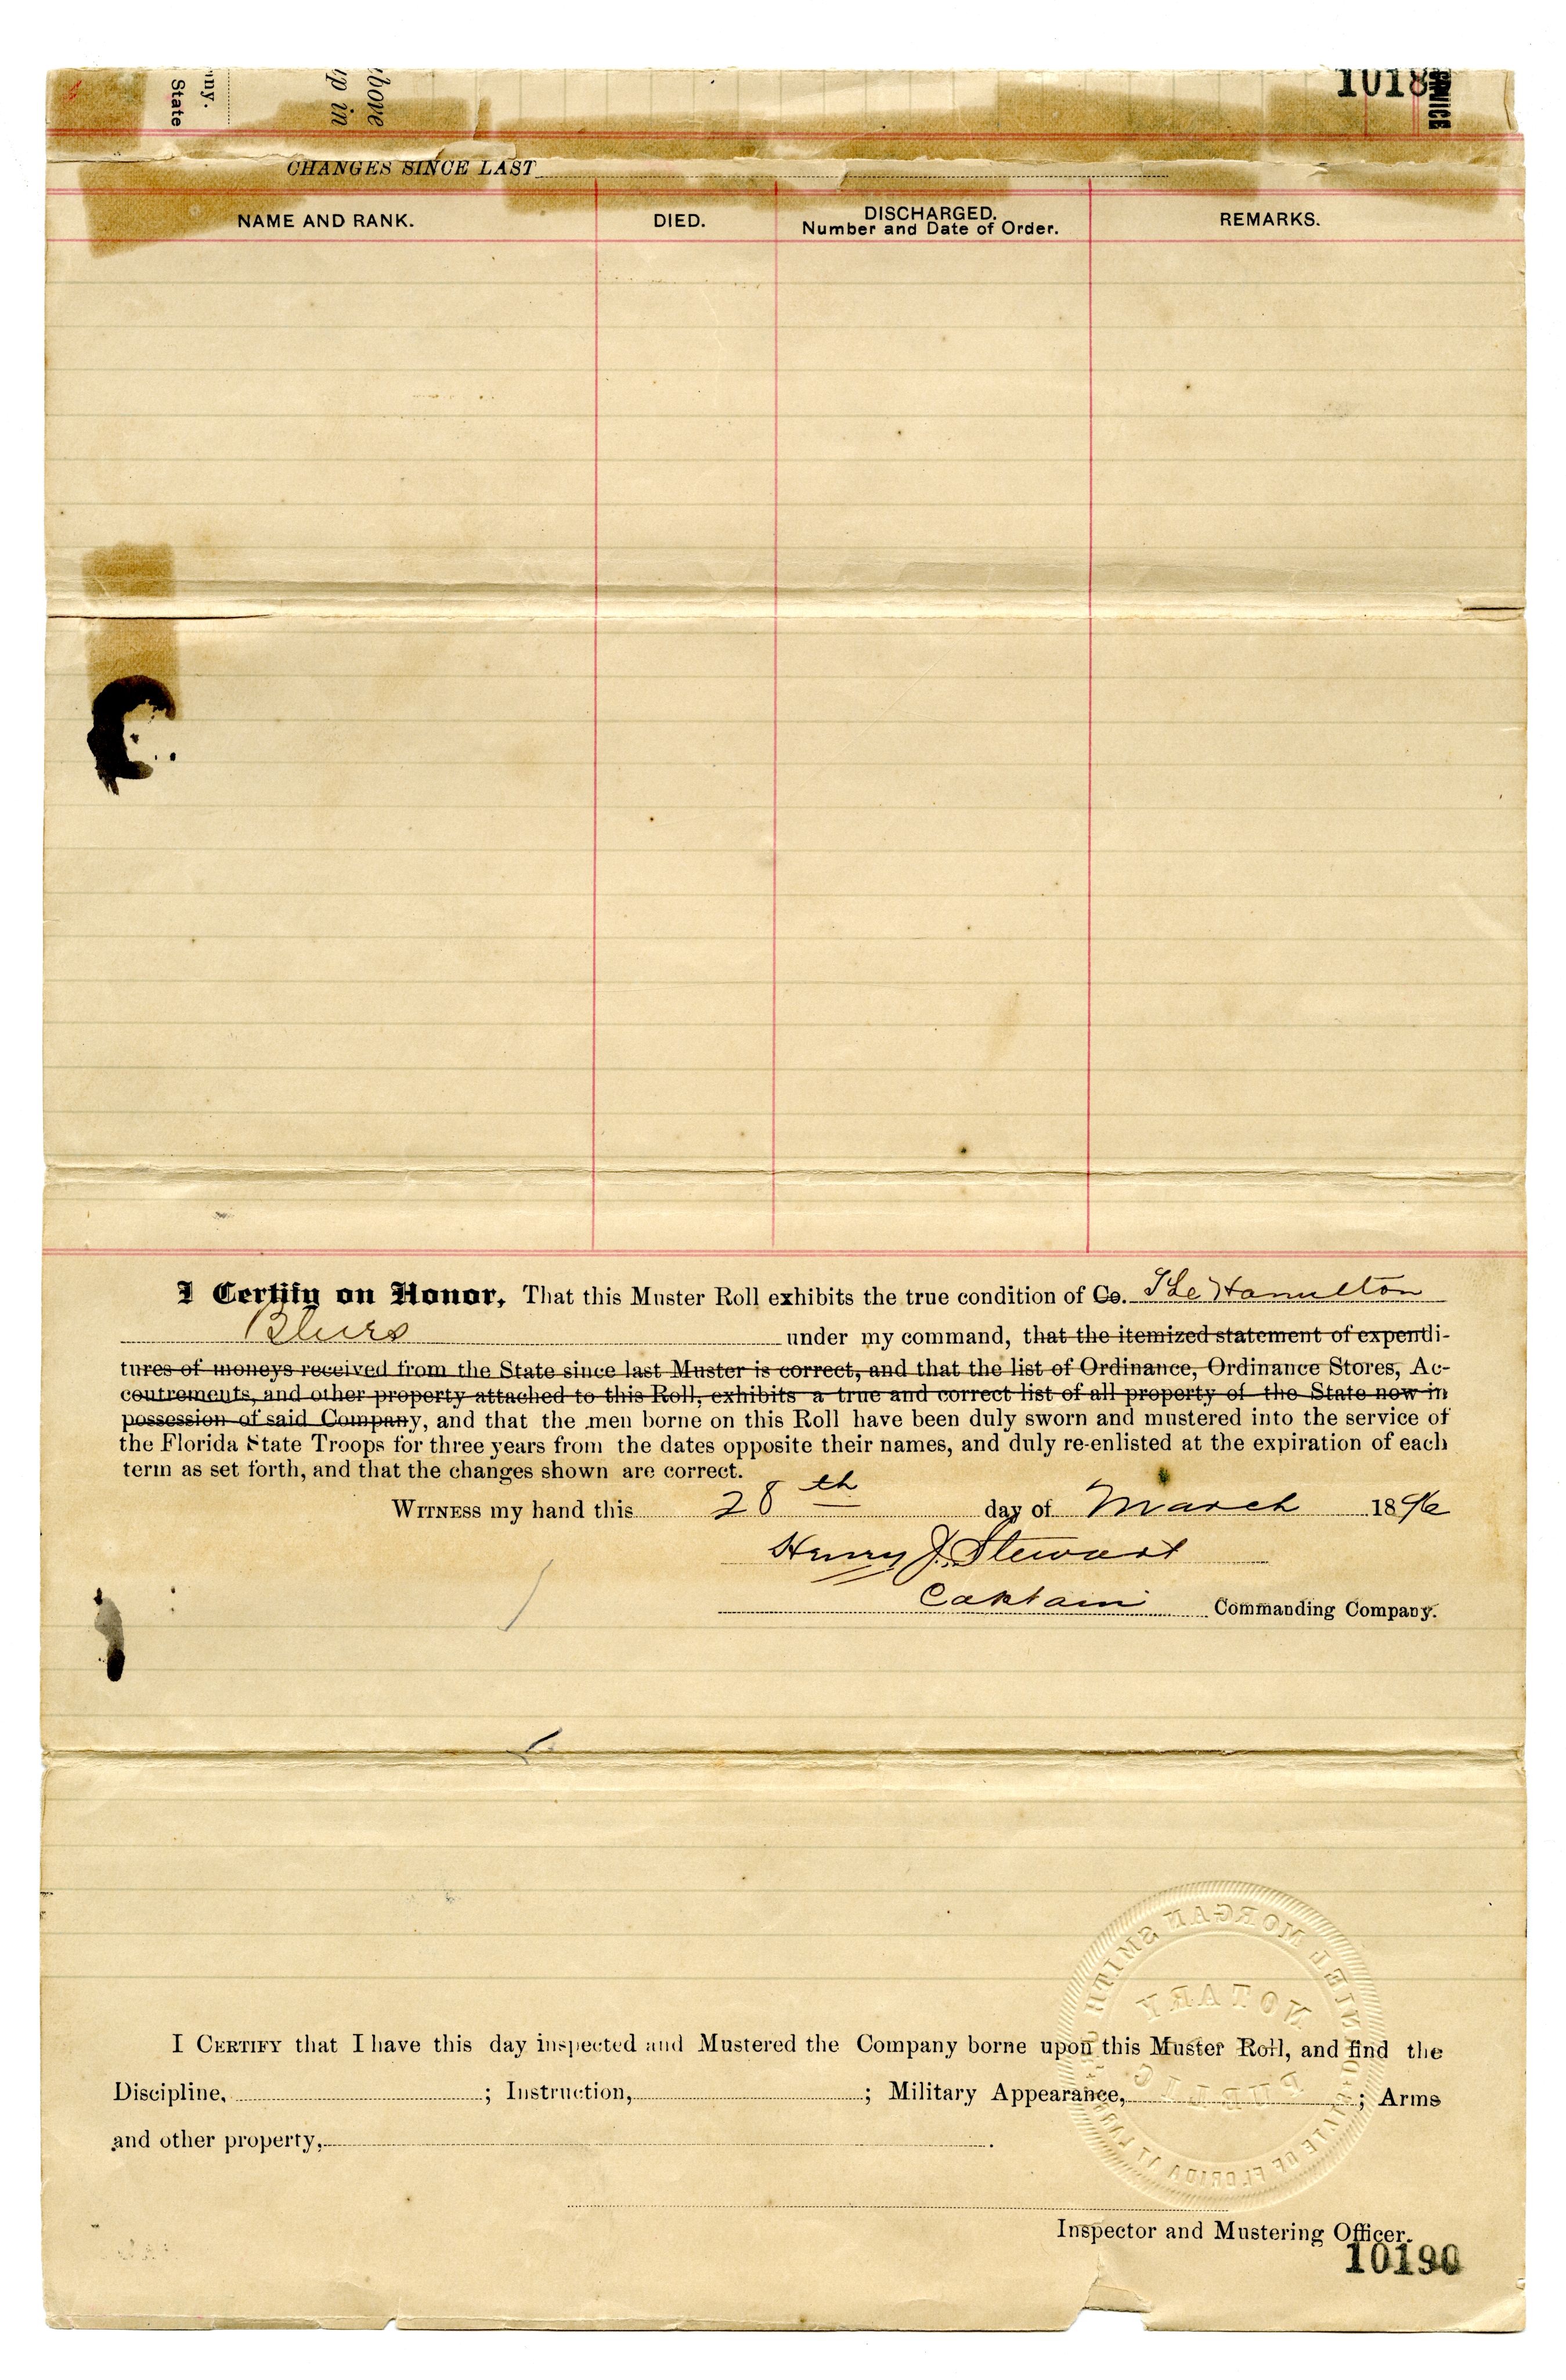 ny.
State
bove
p in
1018
CHANGES SINCE LAST
NAME AND RANK. DIED. DISCHARGED. Number and Date of Order. REMARKS.
I Certify on Honor, That this Muster Roll exhibits the true condition of Co. The Hamilton
Blues under my command, that the itemized statement of expendi-
tures of moneys received from the State since last Muster is correct, and that the list of Ordinance, Ordinance Stores, Ac-
coutrements, and other property attached to this Roll, exhibits a true and correct list of all property of the State now in
possession of said Company, and that the men borne on this Roll have been duly sworn and mustered into the service of
the Florida State Troops for three years from the dates opposite their names, and duly re-enlisted at the expiration of each
term as set forth, and that the changes shown are correct.
WITNESS my hand this 28th day of March 1896
Henry J. Stewart
Captain Commanding Company.
NIEL MORGAN SMITH
NOTARY
PUBLIC
STATE OF FLORIDA AT LARGE
I CERTIFY that I have this day inspected and Mustered the Company borne upon this Muster Roll, and find the
Discipline, ; Instruction, ; Military Appearance, ; Arms
and other property, .
Inspector and Mustering Officer.
10190